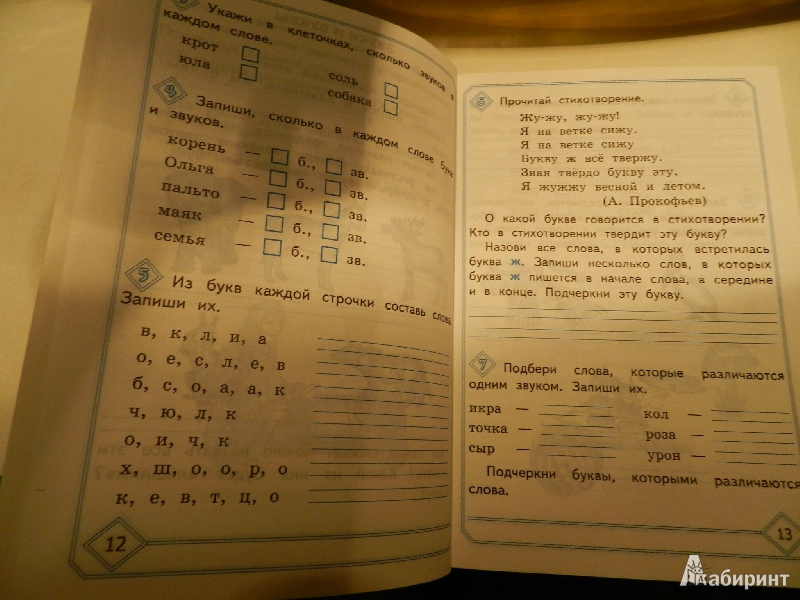 3 Укажи в клеточках, сколько звуков в
каждом слове.
крот
соль
юла
собака
4 Запиши, сколько в каждом слове букв
и звуков.
корень — б., зв.
Ольга — б., зв.
пальто — б., зв.
маяк — б., зв.
семья — б., зв.
5 Из букв каждой строчки составь слова.
Запиши их.
в, к, л, и, а
о, е, с, л, е, в
б, с, о, а, а, к
ч, ю, л, к
о, и, ч, к
х, ш, о, о, р, о
к, е, в, т, ц, о
12
6 Прочитай стихотворение.
Жу-жу, жу-жу!
Я на ветке сижу.
Я на ветке сижу
Букву ж всё твержу.
Зная твёрдо букву эту,
Я жужжу весной и летом.
(А. Прокофьев)
О какой букве говорится в стихотворении?
Кто в стихотворении твердит эту букву?
Назови все слова, в которых встретилась
буква ж. Запиши несколько слов, в которых
буква ж пишется в начале слова, в середине
и в конце. Подчеркни эту букву.
7 Подбери слова, которые различаются
одним звуком. Запиши их.
икра — кол —
точка — роза —
сыр — урон —
Подчеркни буквы, которыми различаются
слова.
13
Лабиринт